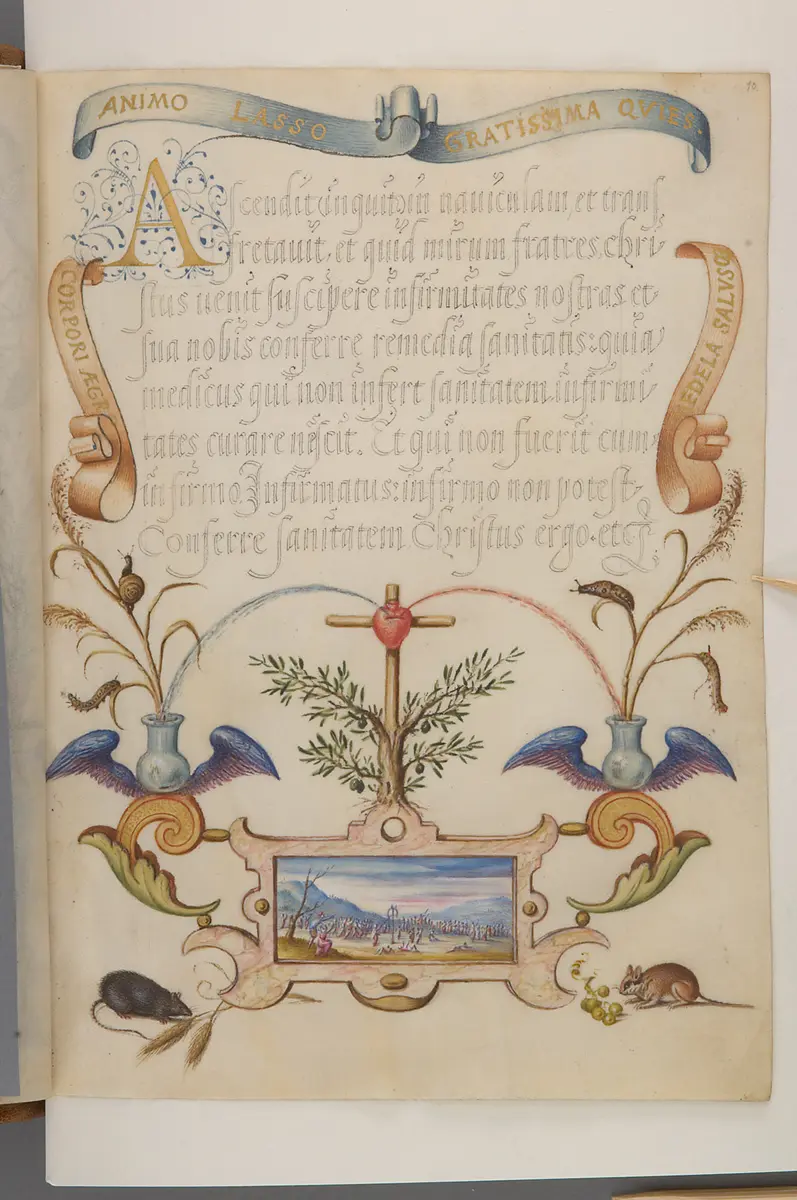 10.
ANIMO LASSO GRATISSIMA QVIES.
Ascendit (inquit) in nauiculam, et trans
fretauit, et quid mirum fratres, chri
stus uenit suscipere infirmitates nostras et
sua nobis conferre remedia sanitatis: quia
medicus qui non infert sanitatem, infirmi
tates curare nescit. Et qui non fuerit cum
infirmo Infirmatus: infirmo non potest
Conferre sanitatem Christus ergo. etc
CORPORI ÆGR
EDELA SALVSQ